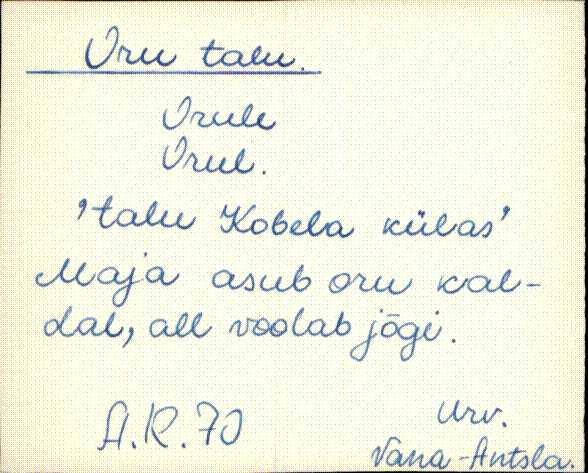 Oru talu.
Orule
Orul.
'talu Kobela külas'
Maja asub oru kal-
dal, all voolab jõgi.
A.R. 70
Urv.
Vana-Antsla.